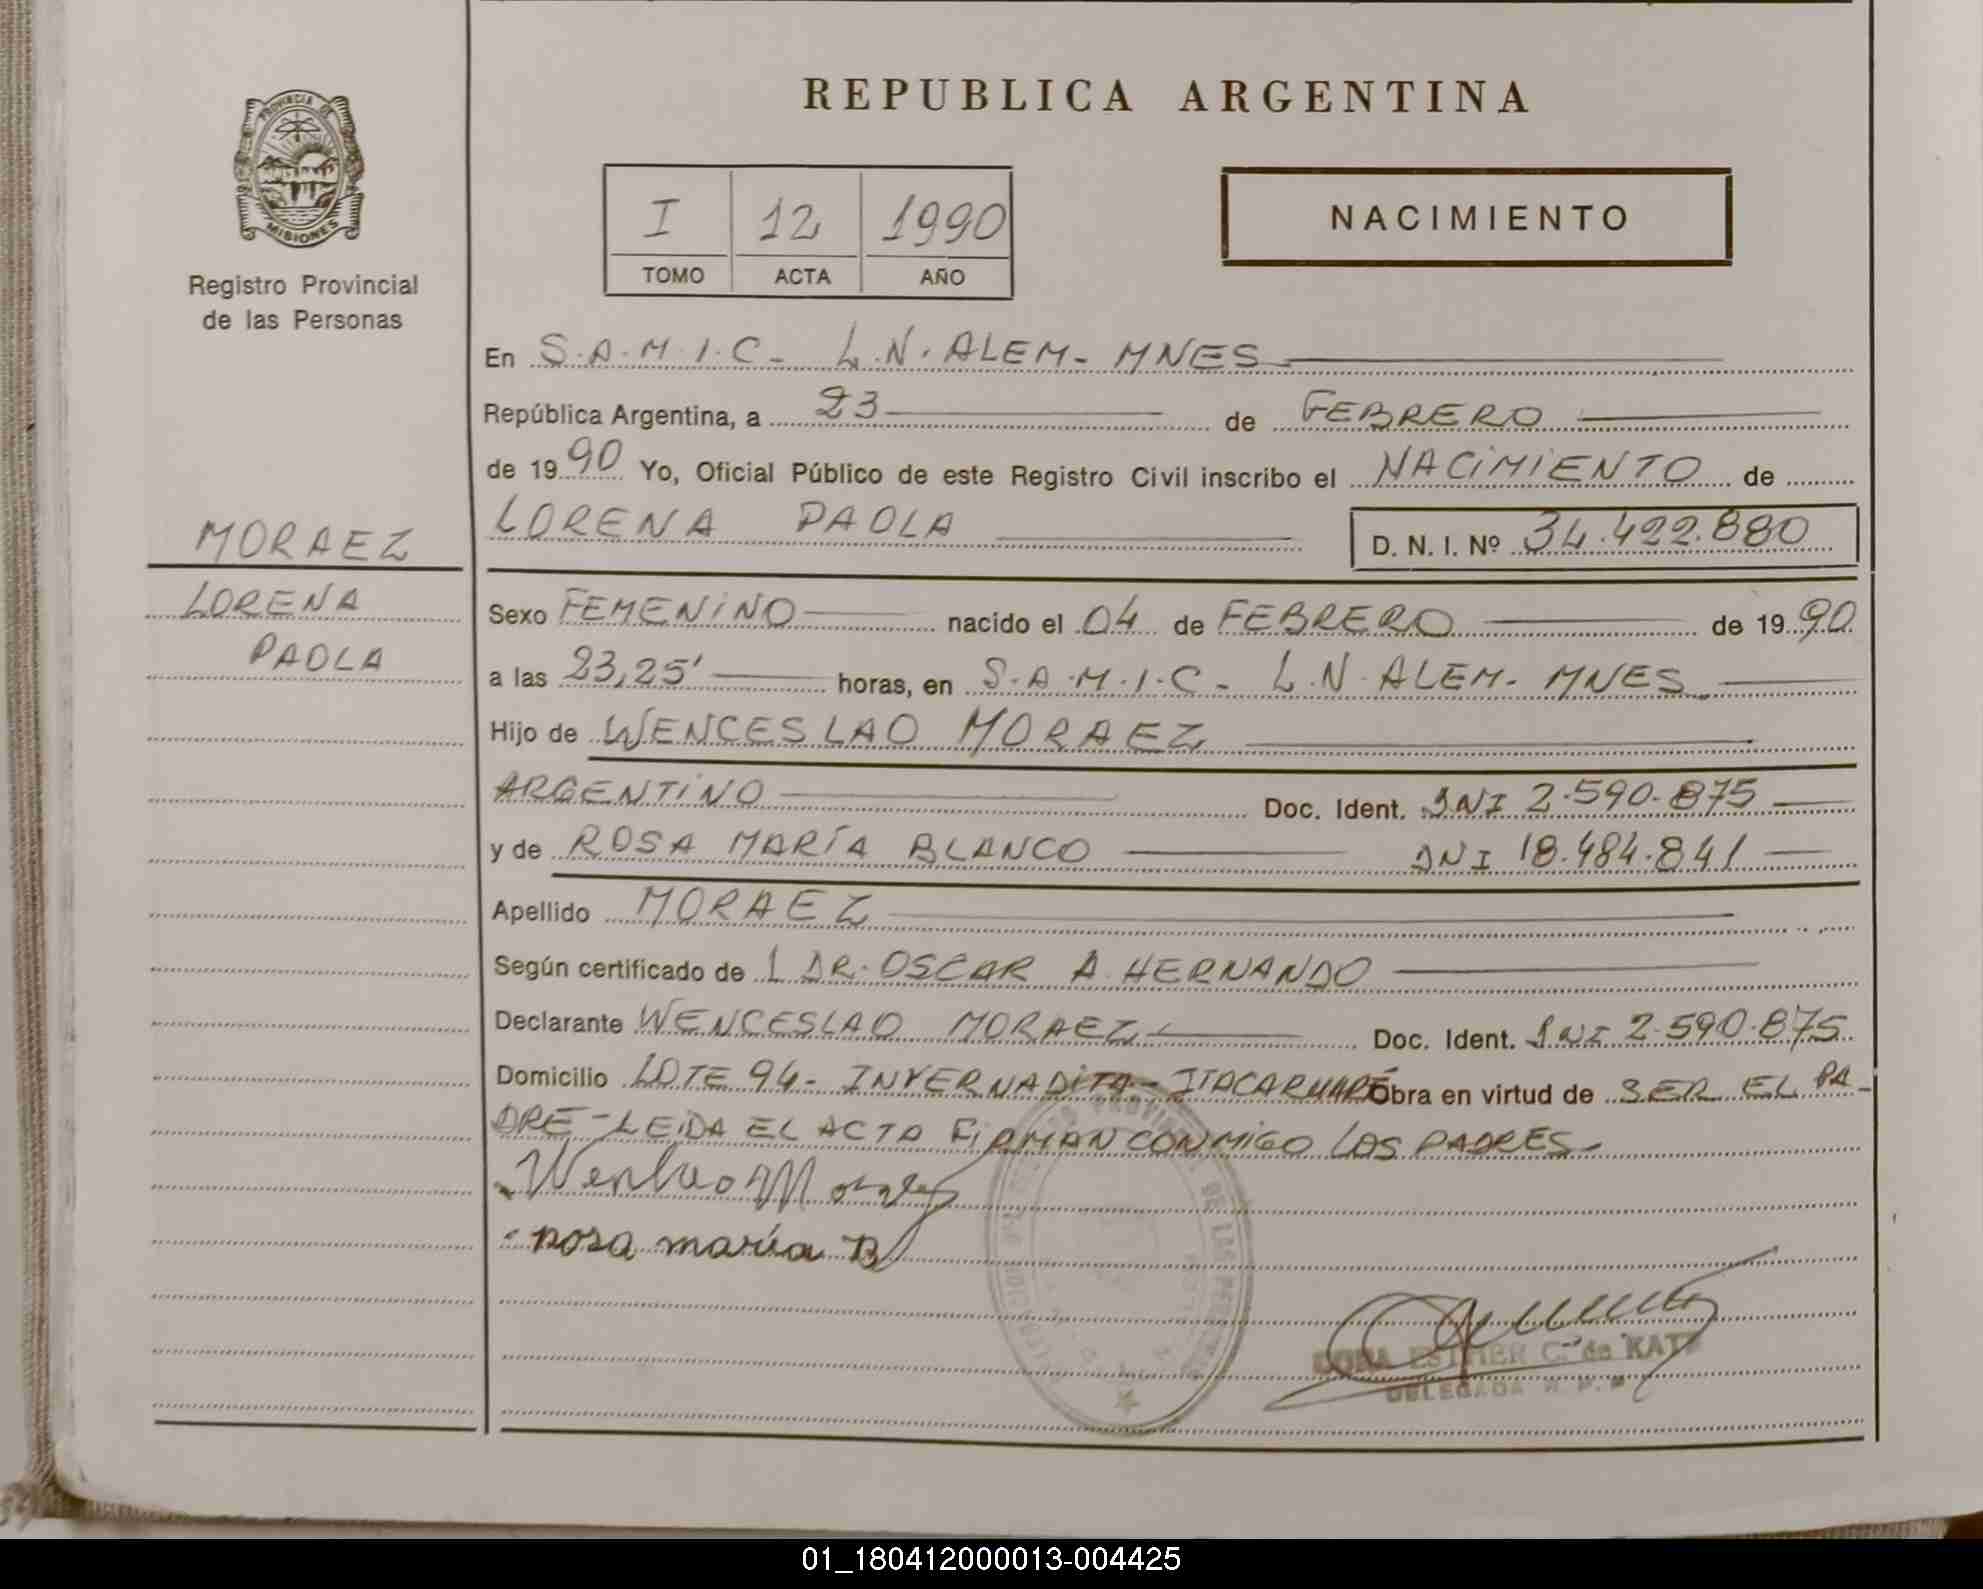 REPUBLICA ARGENTINA
PROVINCIA DE
MISIONES
Registro Provincial
de las Personas
I 12 1990
TOMO ACTA AÑO
NACIMIENTO
En S.A.M.I.C- L.N. ALEM- MNES
República Argentina, a 23 de FEBRERO
de 1990 Yo, Oficial Público de este Registro Civil inscribo el NACIMIENTO de
LORENA PAOLA D. N. I. Nº 34.422.880
MORAEZ
LORENA
PAOLA
Sexo FEMENINO nacido el 04 de FEBRERO de 1990
a las 23,25' horas, en S.A.M.I.C- L.N. ALEM- MNES
Hijo de WENCESLAO MORAEZ
ARGENTINO Doc. Ident. DNI 2.590.875
y de ROSA MARÍA BLANCO DNI 18.484.841
Apellido MORAEZ
Según certificado de 1 DR. OSCAR A. HERNANDO
Declarante WENCESLAO MORAEZ Doc. Ident. DNI 2.590.875
Domicilio LOTE 94- INVERNADITA- ITACARUARÉ Obra en virtud de SER EL PA-
DRE- LEIDA EL ACTA FIRMAN CONMIGO LOS PADRES-
rosa maría B
ESTHER C. de KATZ
DELEGADA R. P. P.
01_180412000013-004425